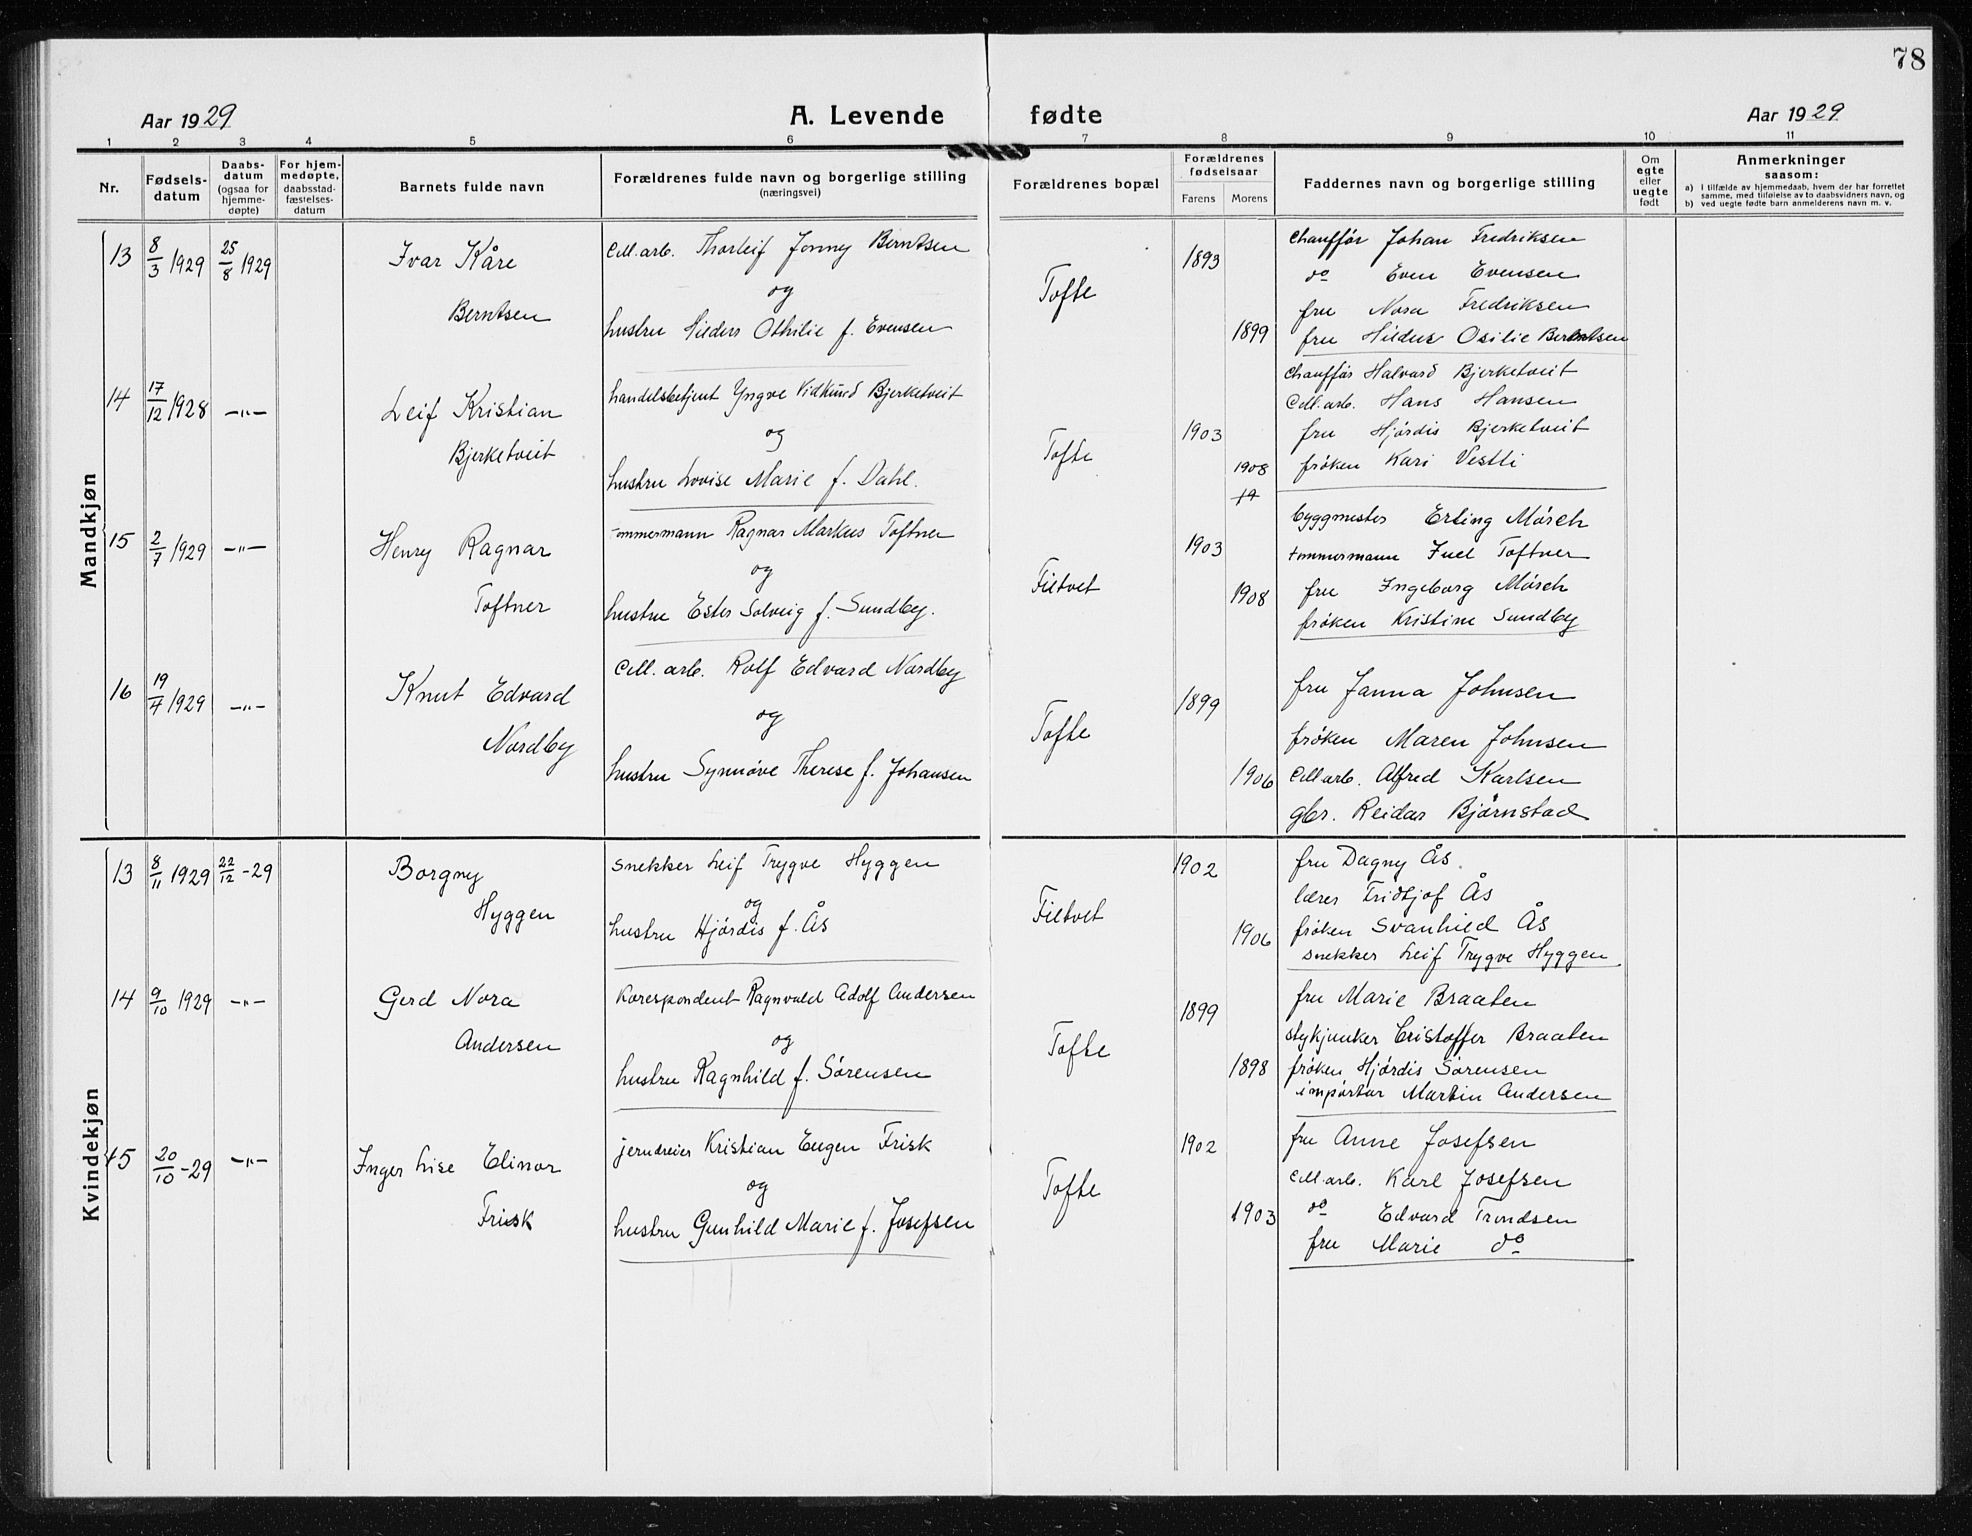 78
Aar 1929 A. Levende fødte Aar 1929
1 2 3 4 5 6 7 8 9 10 11
Nr.
Fødsels-
datum
Daabs-
datum
(ogsaa for
hjemme-
døpte)
For hjem-
medøpte,
daabsstad-
fæstelses-
datum
Barnets fulde navn
Forældrenes fulde navn og borgerlige stilling
(næringsvei)
Forældrenes bopæl
Forældrenes
fødselsaar
Farens Morens
Faddernes navn og borgerlige stilling
Om
egte
eller
uegte
født
Anmerkninger
saasom:
a) I tilfælde av hjemmedaab, hvem der har forrettet
samme, med tilføielse av to daabsvidners navn, og
b) ved uegte fødte barn anmelderens navn m. v.
Mandkjøn
13 8/3 1929 25/8 1929
Ivar Kåre
Berntsen
Cell.arb. Thorleif Jonny Berntsen
og
hustru Hildus Othilie f. Evensen
Tofte
1893
1899
Chauffør Johan Fredriksen
do Even Evensen
fru Nora Fredriksen
fru Hildus Osilie Berntsen
14 17/12 1928 -"-
Leif Kristian
Bjerketveit
handelsbetjent Yngve Vidkund Bjerketveit
og
hustru Lovise Marie f. Dahl.
Tofte
1903
1908
Chauffør Halvard Bjerketveit
Cell.arb. Hans Hansen
fru Hjørdis Bjerketveit
frøken Kari Vestli
15 2/7 1929 -"-
Henry Ragnar
Toftner
tømmermann Ragnar Markus Toftner
og
hustru Ester Solveig f. Sundby.
Filtvet
1903
1908
byggmester Erling Mørch
tømmermann Juel Toftner
fru Ingeborg Mørch
frøken Kristine Sundby
16 19/4 1929 -"-
Knut Edvard
Nordby
Cell. arb. Rolf Edvard Nordby
og
hustru Synnøve Therese f. Johansen
Tofte
1899
1906
fru Janna Johnsen
frøken Maren Johnsen
Cell arb. Alfred Karlsen
gbr. Reidar Bjørnstad
Kvindekjøn
13 8/11 1929 22/12 -29
Borgny
Hyggen
Snekker Leif Trygve Hyggen
og
hustru Hjørdis f. Ås
Filtvet
1902
1906
fru Dagny Ås.
lærer Fridtjof Ås
frøken Svanhild Ås
snekker Leif Trygve Hyggen
14 9/10 1929 -"-
Gerd Nora
Andersen
Korespondent Ragnvald Adolf Andersen
og
hustru Ragnhild f. Sørensen
Tofte
1899
1898
fru Marie Braaten
stykjunker Cristoffer Braaten
frøken Hjørdis Sørensen
impørtør Martin Andersen
15 20/10 -29 -"-
Inger Lise Elinor
Frisk
jerndreier Kristian Eugen Frisk
og
hustru Gunhild Marie f. Josefsen
Tofte
1902
1903
fru Anne Josefsen
Cell.arb. Karl Josefsen
do Edvard Trondsen
fru Marie do